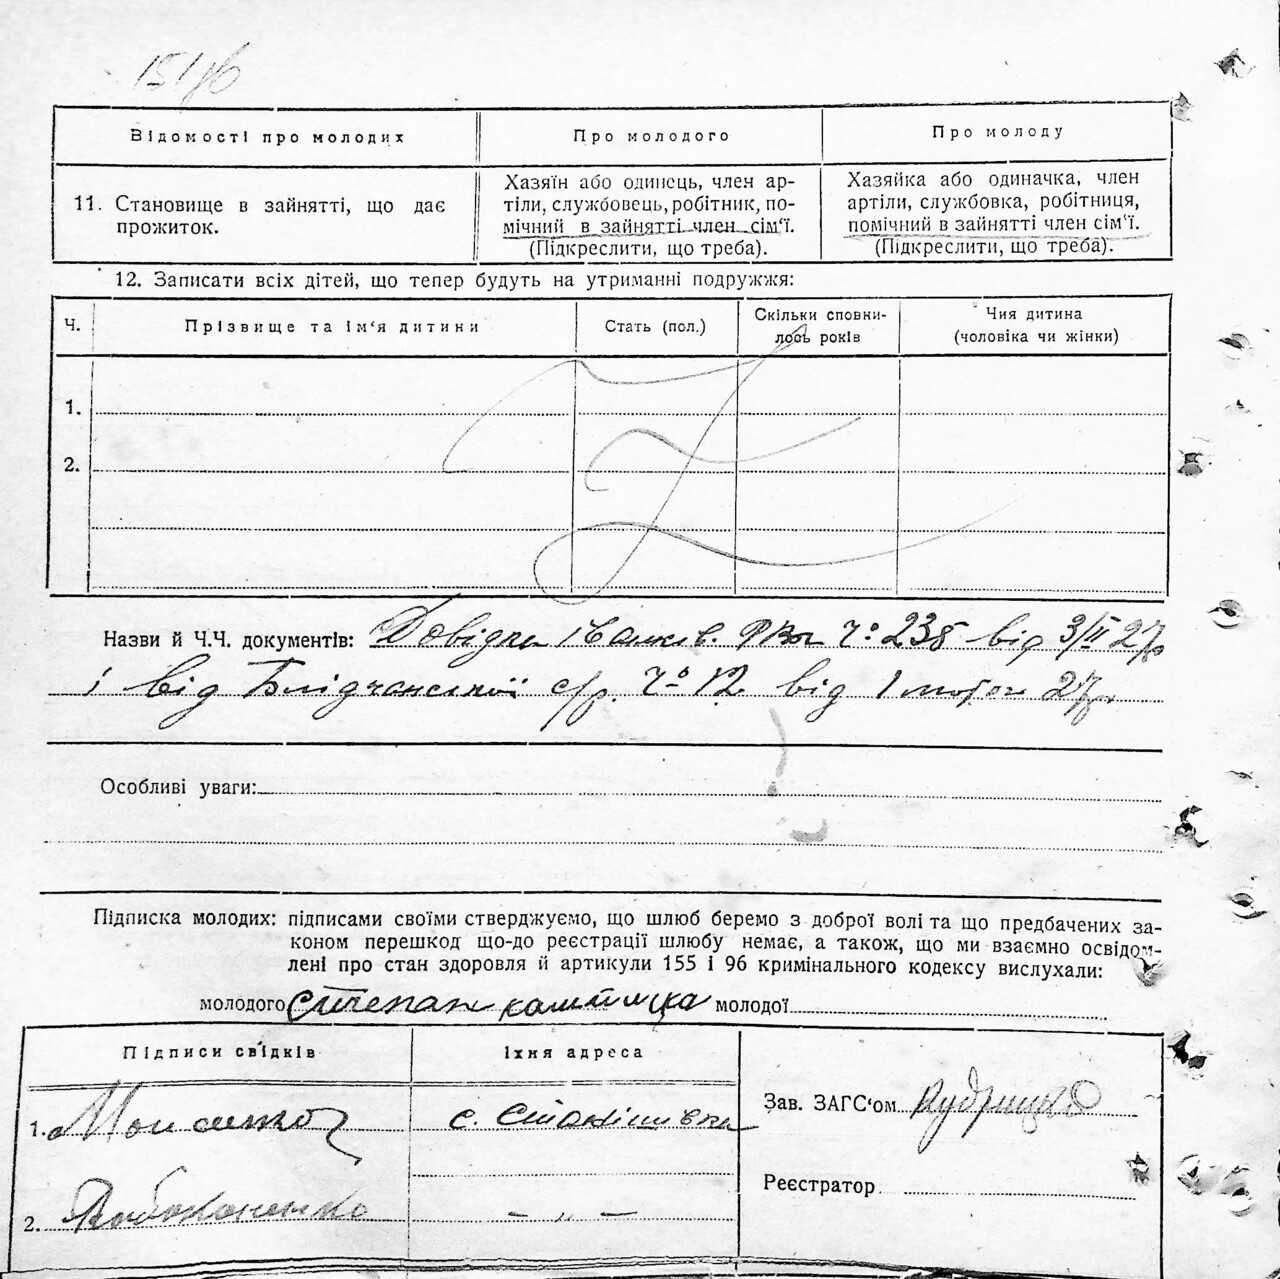 Відомості про молодих
Про молодого
Про молоду
11. Становище в зайнятті, що дає
прожиток.
Хазяїн або одинець, член ар-
тіли, службовець, робітник, по-
мічний в зайнятті член сім'ї.
(Підкреслити, що треба).
Хазяйка або одиначка, член
артіли, службовка, робітниця,
помічний в зайнятті член сім'ї.
(Підкреслити, що треба).
12. Записати всіх дітей, що тепер будуть на утриманні подружжя:
Ч.
Прізвище та ім'я дитини
Стать (пол.)
Скільки сповни-
лось років
Чия дитина
(чоловіка чи жінки)
1.
2.
Назви й Ч.Ч. документів: Довідка Ч° 238 від 3/II 27р
і від Блідчанської с/р. Ч° 12 від 1 лютого 27р.
Особливі уваги:
Підписка молодих: підписами своїми стверджуємо, що шлюб беремо з доброї волі та що предбачених за-
коном перешкод що-до реєстрації шлюбу немає, а також, що ми взаємно освідом-
лені про стан здоровля й артикули 155 і 96 кримінального кодексу вислухали:
молодого Степан молодої
Підписи свідків
Їхня адреса
1.
с. Станішівка
Зав. ЗАГС'ом
Реєстратор
2.
— „ —